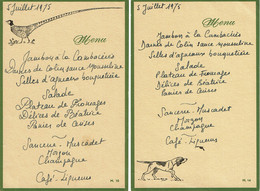 5 Juillet 1975
Menu
Jambon à la Cambacérès
Darnes de Colin sauce mousseline
Selles d'agneau bouquetière
Salade
Plateau de Fromages
Délices de Béatrice
Panier de Cerises
Sancerre - Muscadet
Mazon
Champagne
Café - Liqueurs
5 Juillet 1975
Menu
Jambon à la Cambacérès
Darnes de Colin sauce mousseline
Selles d'agneau bouquetière
Salade
Plateau de Fromages
Délices de Béatrice
Panier de Cerises
Sancerre - Muscadet
Mazon
Champagne
Café - Liqueurs